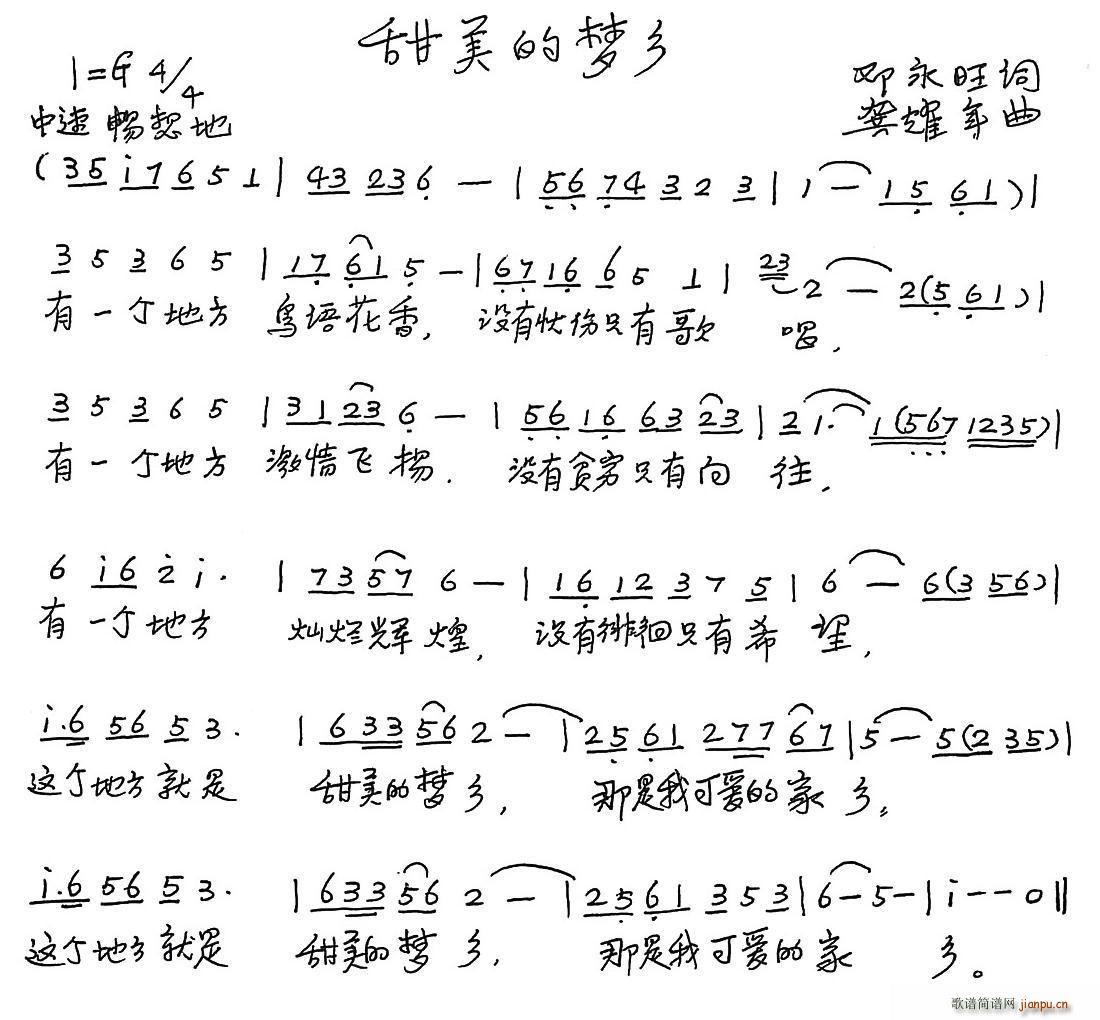 甜美的梦乡
1=G 4/4
邓永旺词
中速 畅想地
龚耀年曲
(35 i7 6 5 1 | 43 23 6 — | 56 74 3 2 3 | 1 — 15 61) |
3 5 3 6 5 | 17 61 5 — | 67 16 6 5 1 | 23 2 — 2(5 61) |
有一个地方 鸟语花香, 没有忧伤只有歌 唱,
3 5 3 6 5 | 31 23 6 — | 56 16 63 23 | 2 1. 1(567 1235) |
有一个地方 激情飞扬. 没有贫穷只有向 往,
6 i6 2 i. | 73 57 6 — | 16 12 3 7 5 | 6 — 6(3 56) |
有一个地方 灿烂辉煌, 没有徘徊只有希 望,
i.6 56 5 3. | 633 56 2 — | 25 61 277 67 | 5 — 5(2 35) |
这个地方就是 甜美的梦乡, 那是我可爱的家乡。
i.6 56 5 3. | 633 56 2 — | 25 61 3 5 3 | 6 — 5 — | i — — 0 ‖
这个地方就是 甜美的梦乡, 那是我可爱的家 乡。
歌谱简谱网 jianpu.cn